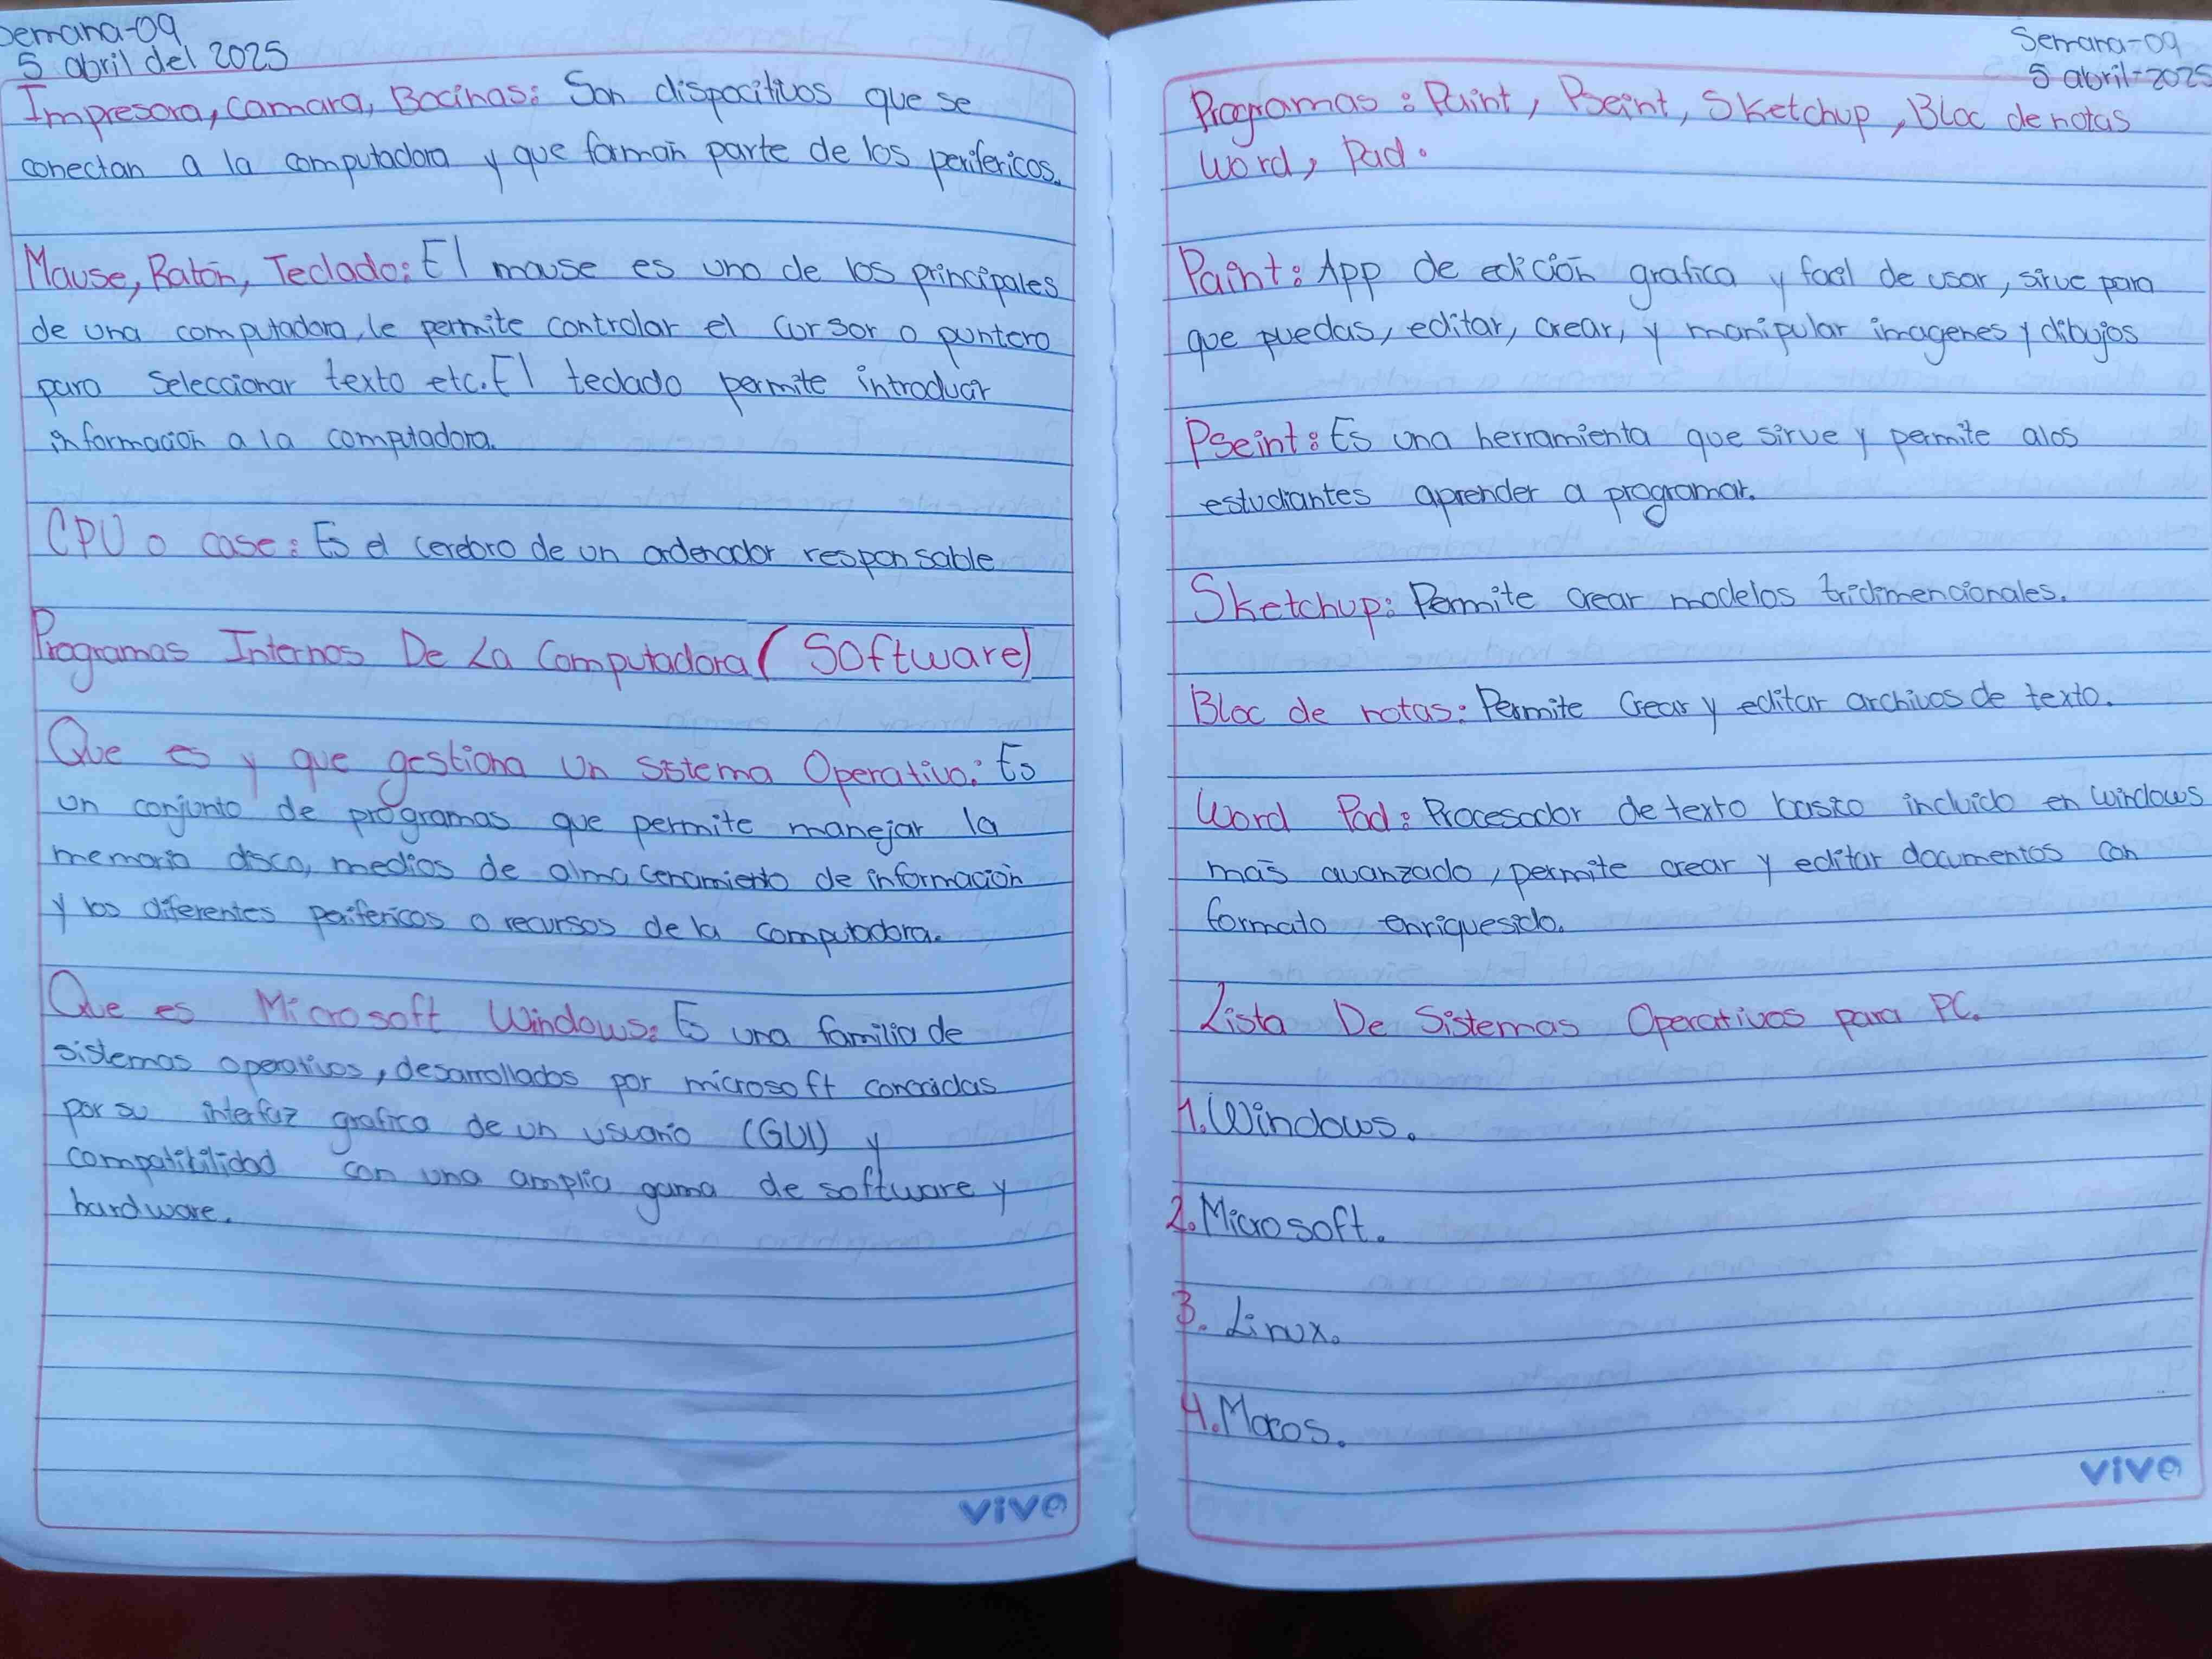 Semana-09
5 abril del 2025
Impresora, camara, Bocinas: Son dispocitivos que se
conectan a la computadora y que forman parte de los perifericos.
Mause, Ratón, Teclado: El mouse es uno de los principales
de una computadora, le permite controlar el cursor o puntero
para seleccionar texto etc. El teclado permite introducir
información a la computadora.
CPU o case: Es el cerebro de un ordenador responsable
Programas Internos De La Computadora (Software)
Que es y que gestiona un sistema Operativo: Es
un conjunto de programas que permite manejar la
memoria disco, medios de almacenamiento de información
y los diferentes perifericos o recursos de la computadora.
Que es Microsoft Windows: Es una familia de
sistemas operativos, desarrollados por microsoft conocidas
por su interfaz grafica de un usuario (GUI) y
compatibilidad con una amplia gama de software y
hardware.
vivo
Semana-09
5 abril-2025
Programas: Paint, Pseint, Sketchup, Bloc de notas
Word, Pad.
Paint: App de edición grafica y facil de usar, sirve para
que puedas, editar, crear, y manipular imagenes y dibujos
PSeint: Es una herramienta que sirve y permite alos
estudiantes aprender a programar.
Sketchup: Permite crear modelos tridimencionales.
Bloc de notas: Permite Crear y editar archivos de texto.
Word Pad: Procesador de texto basico incluido en windows
más avanzado, permite crear y editar documentos con
formato enriquesido.
Lista De Sistemas Operativos para PC.
1. Windows.
2. Microsoft.
3. Linux.
4. Macos.
vivo